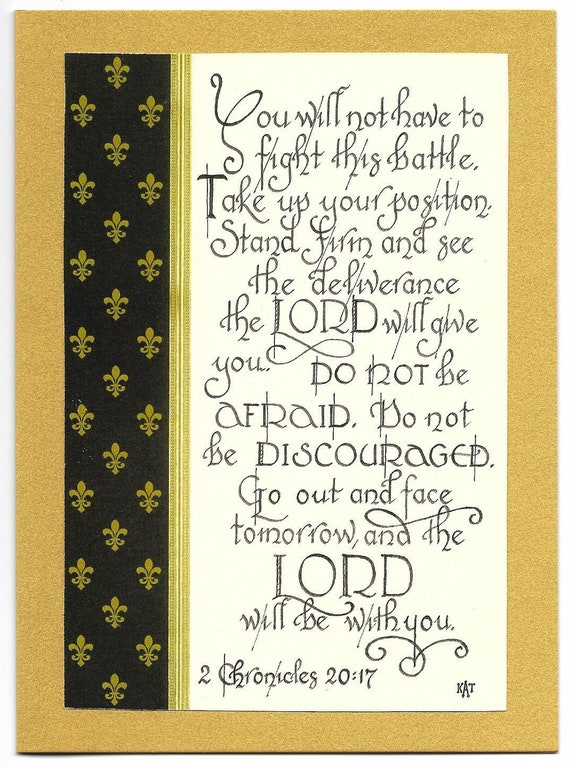 You will not have to
fight this battle.
Take up your position.
Stand firm and see
the deliverance
the LORD will give
you. DO NOT be
AFRAID. Do not
be DISCOURAGED.
Go out and face
tomorrow, and the
LORD
will be with you.
2 Chronicles 20:17
KAT